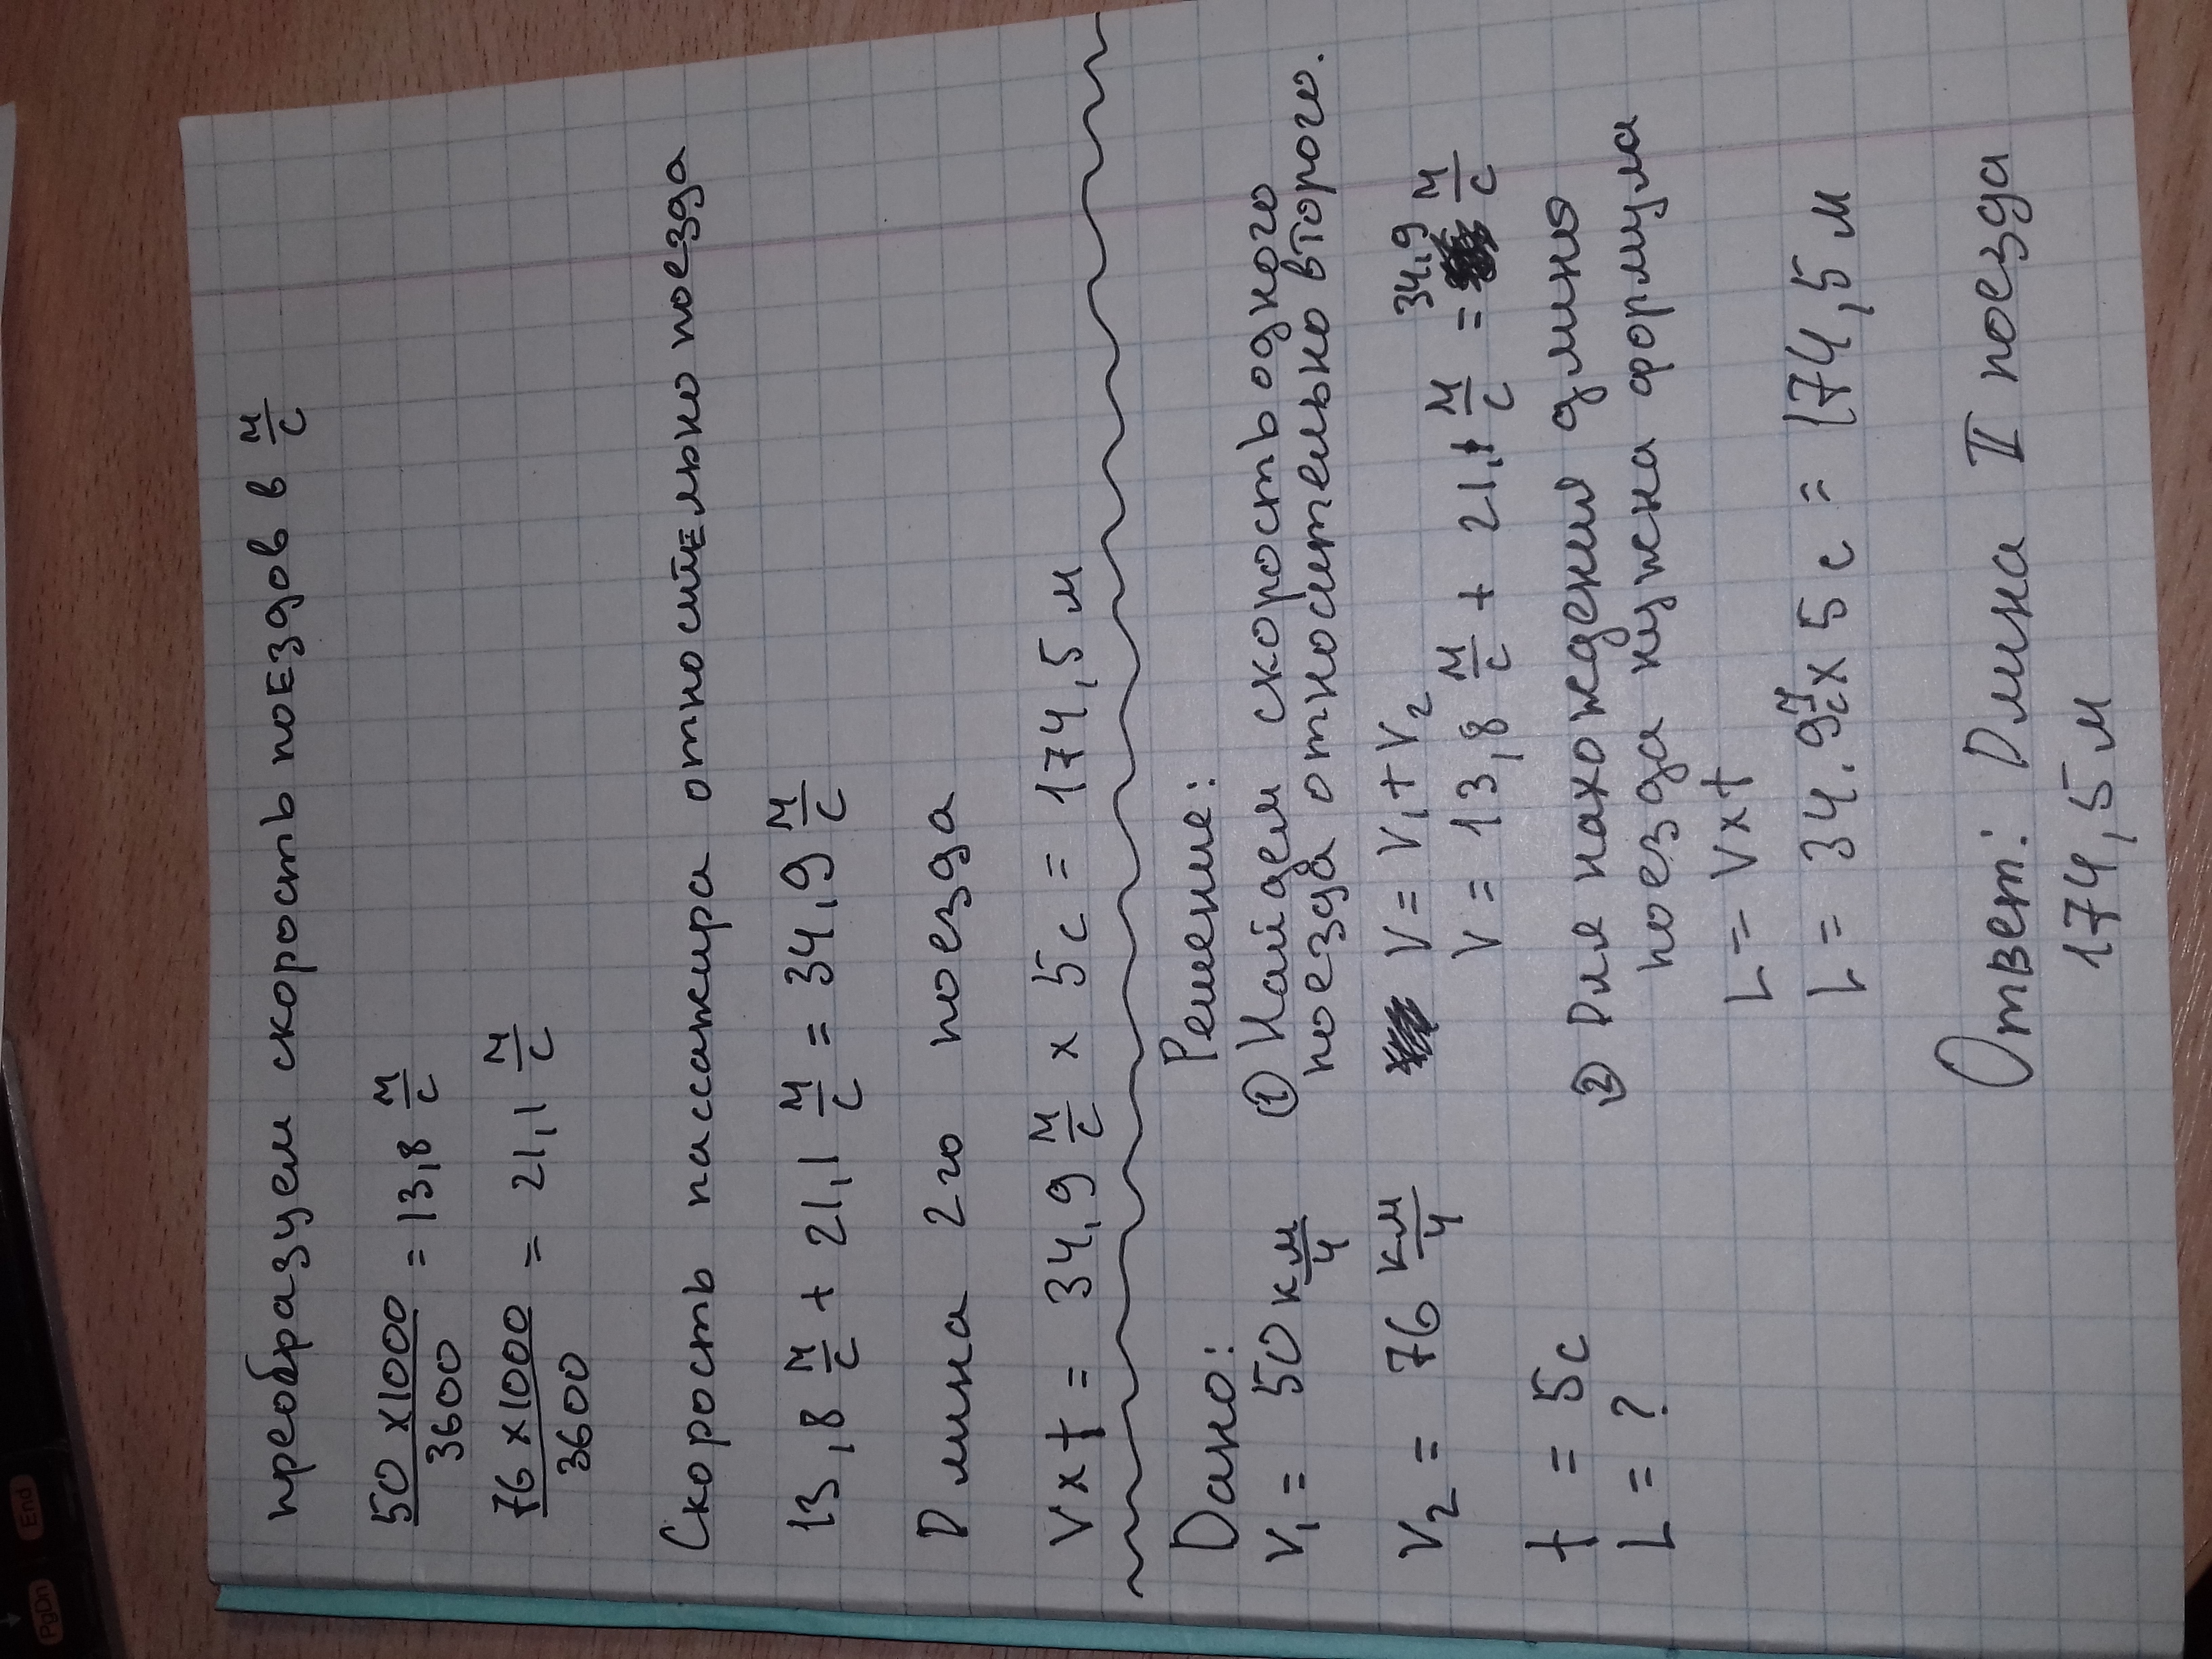 преобразуем скорость поездов в м/с
50 х1000/3600 = 13,8 м/с
76 х1000/3600 = 21,1 м/с
Скорость пассажира относительно поезда
13,8 м/с + 21,1 м/с = 34,9 м/с
Длина 2го поезда
V x t = 34,9 м/с x 5с = 174,5 м
Дано:
V₁ = 50 км/ч
V₂ = 76 км/ч
t = 5с
L = ?
Решение:
① Найдем скорость одного
поезда относительно второго.
V = V₁ + V₂
V = 13,8 м/с + 21,1 м/с = 34,9 м/с
② Для нахождения длины
поезда нужна формула
L = V x t
L = 34.9 м/с x 5 с = 174,5 м
Ответ: Длина II поезда
174,5 м
PgDn
End